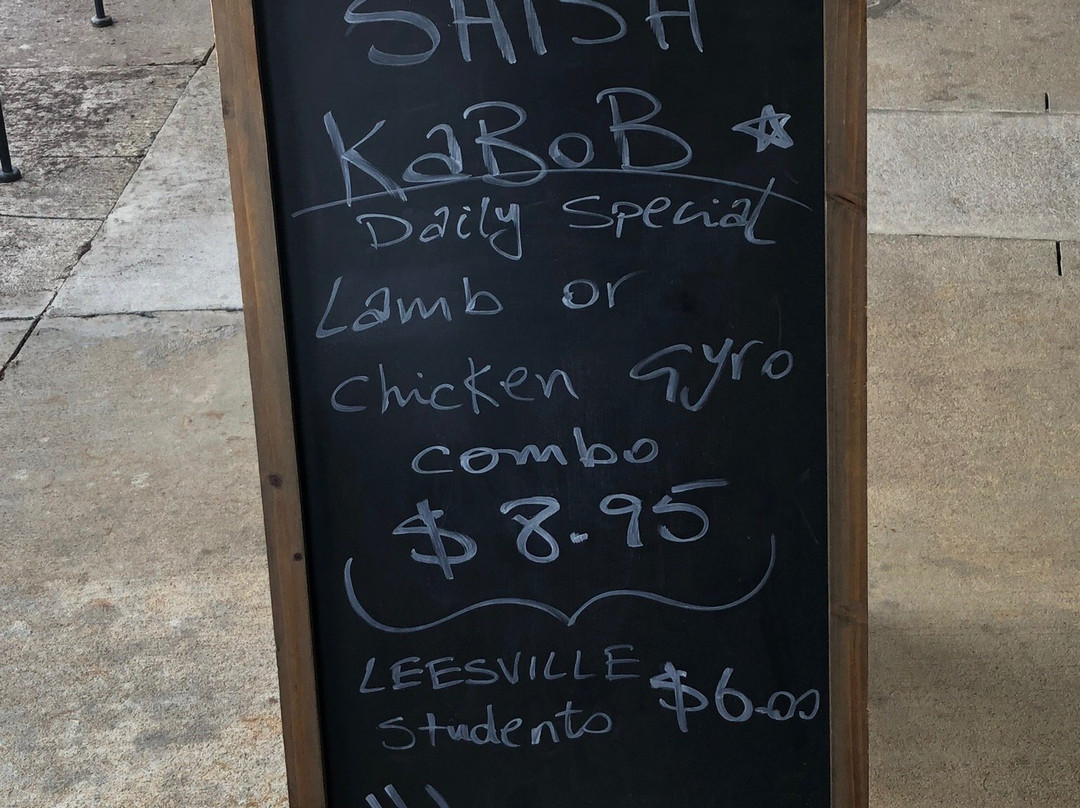 SHISH
KaBoB
Daily Special
Lamb or
chicken Gyro
combo
$ 8.95
LEESVILLE $6.00
Students